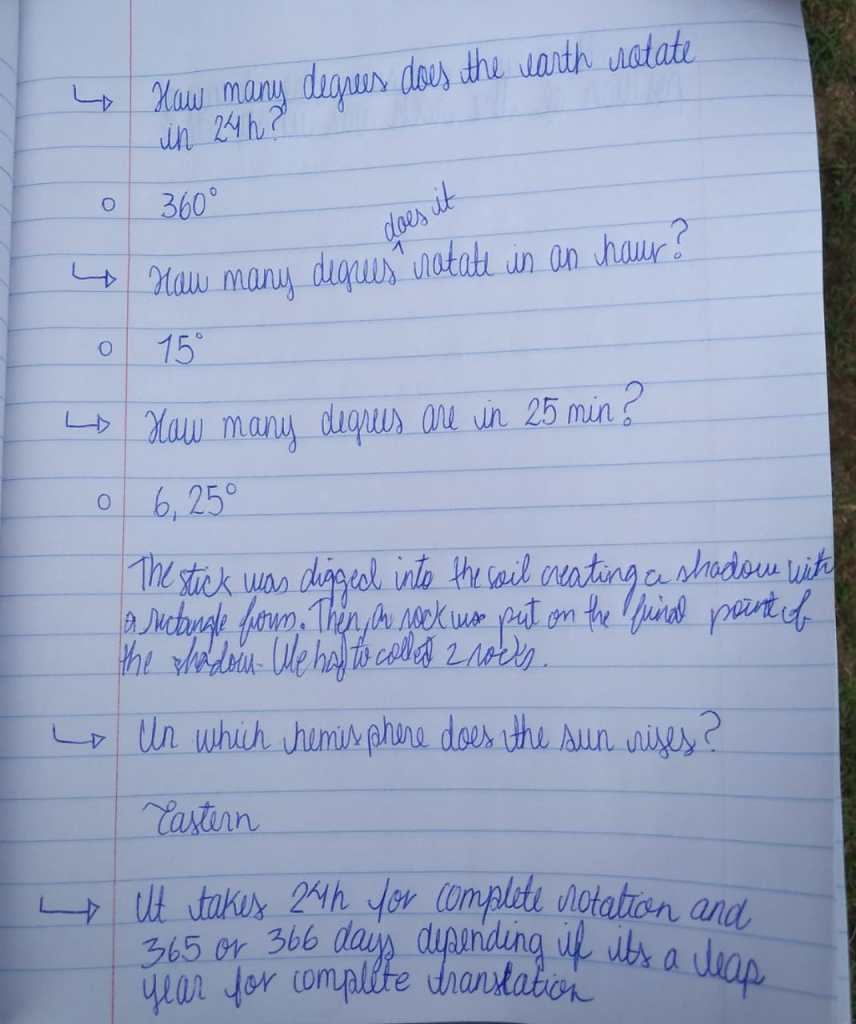 How many degrees does the earth rotate
in 24h?
360°
does it
How many degrees rotate in an hour?
15°
How many degrees are in 25 min?
6,25°
The stick was digged into the soil creating a shadow with
a rectangle form. Then, a rock was put on the final point of
the shadow. We had to collect 2 rocks.
In which hemisphere does the sun rises?
Eastern
It takes 24h for complete rotation and
365 or 366 days depending if its a leap
year for complete translation